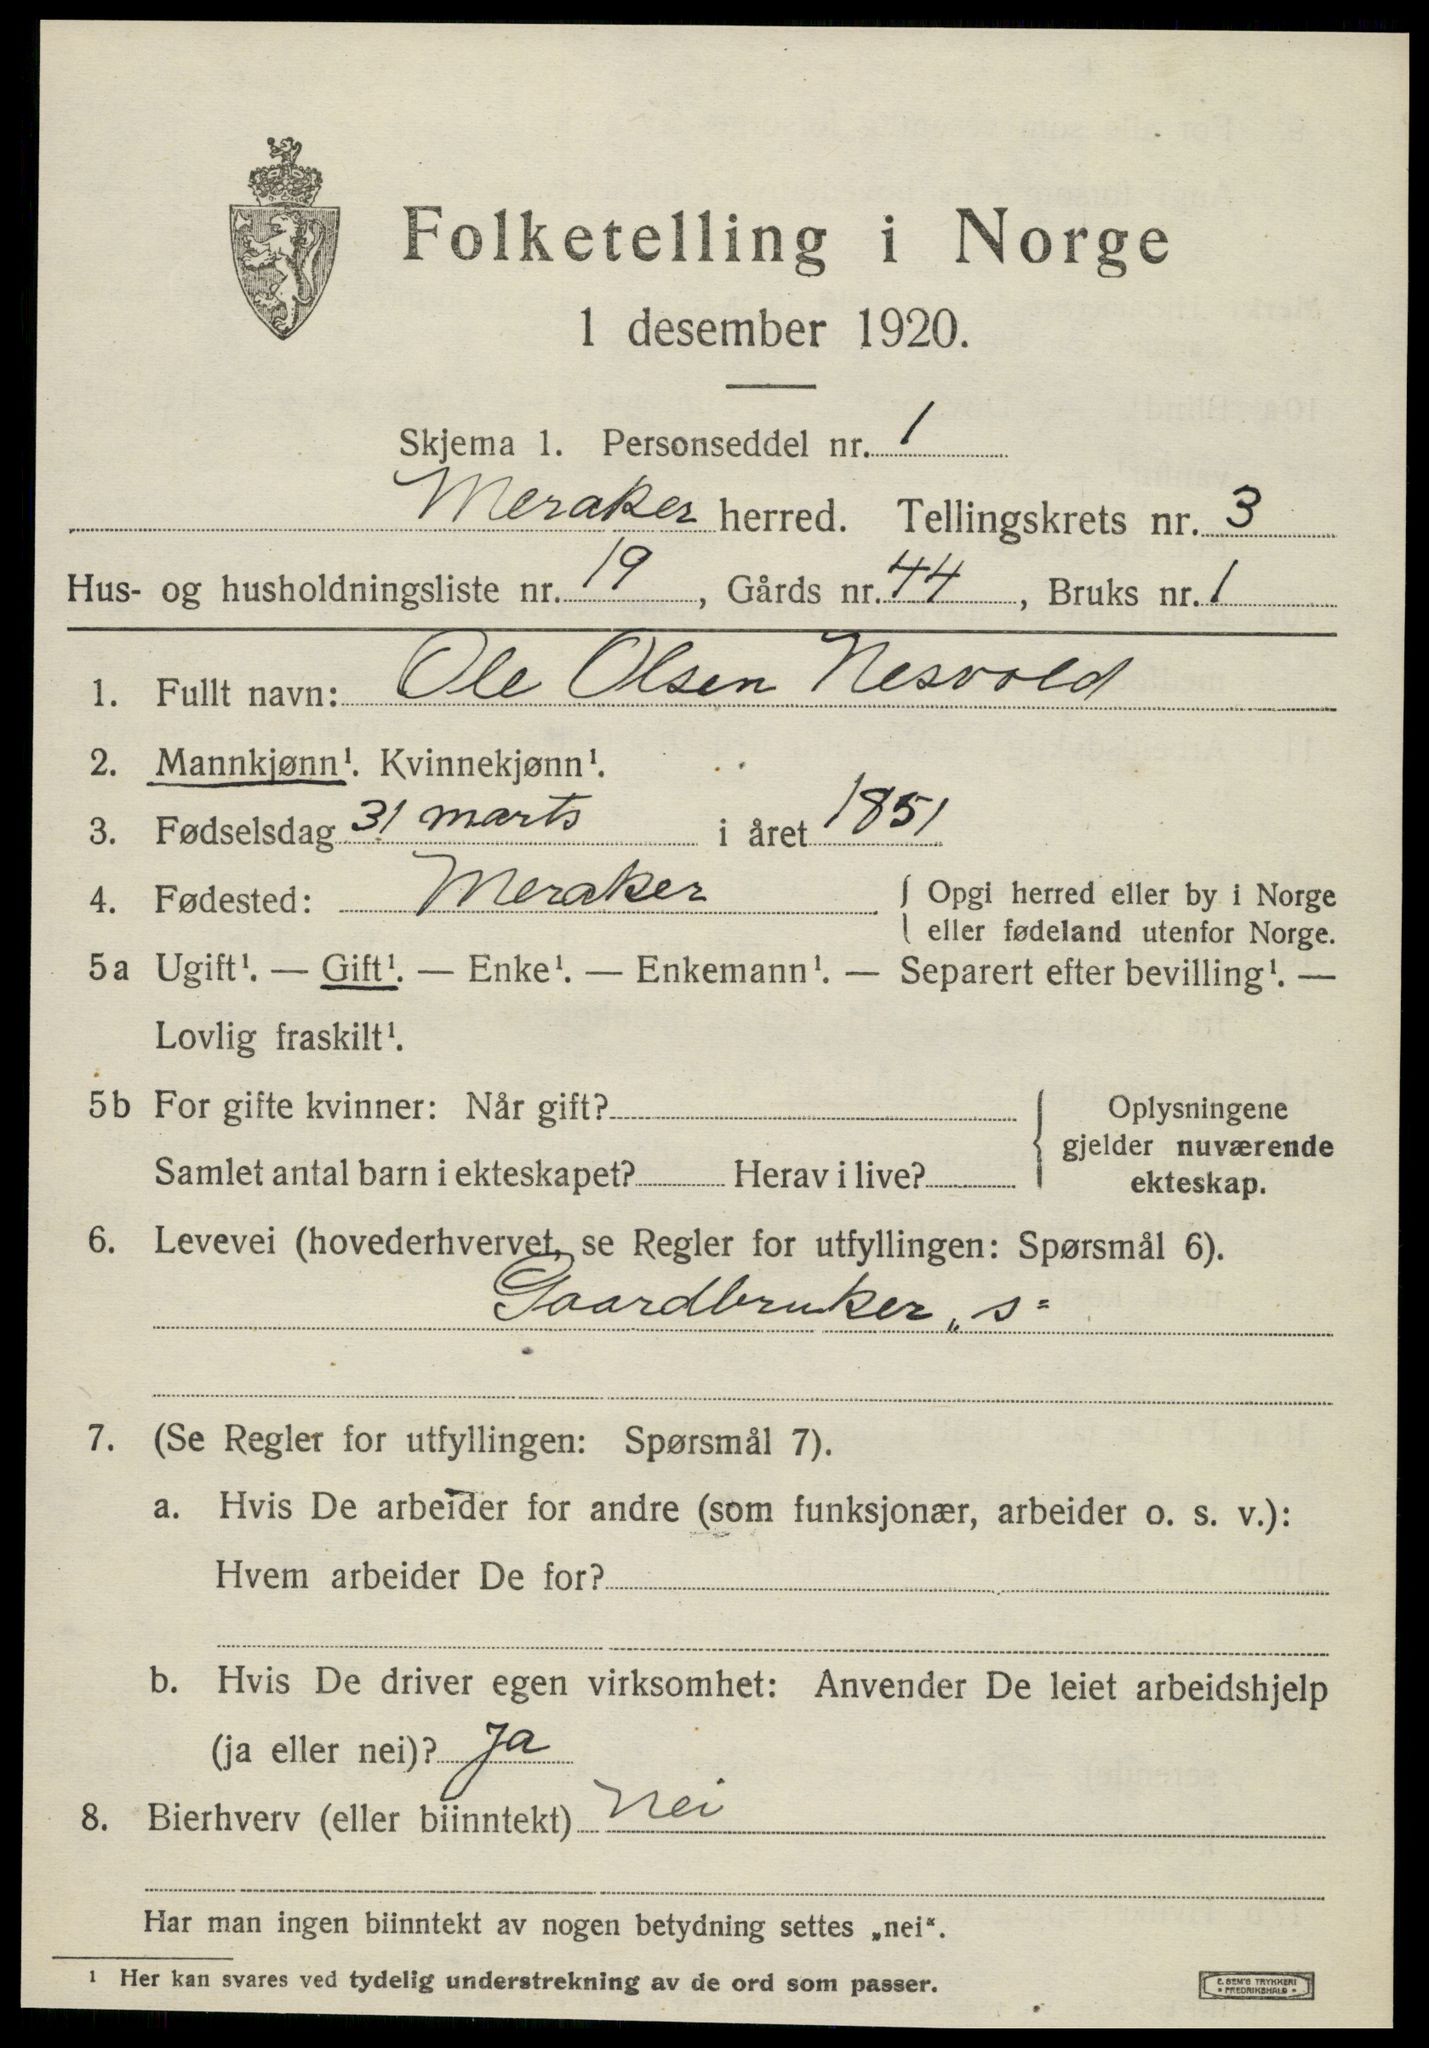 Folketelling i Norge
1 desember 1920.
Skjema 1. Personseddel nr. 1
Meraker herred. Tellingskrets nr. 3
Hus- og husholdningsliste nr. 19, Gårds nr. 44, Bruks nr. 1
1. Fullt navn: Ole Olsen Nesvold
2. Mannkjønn¹. Kvinnekjønn¹.
3. Fødselsdag 31 marts i året 1851
4. Fødested: Meraker { Opgi herred eller by i Norge
eller fødeland utenfor Norge.
5a Ugift¹. — Gift¹. — Enke¹. — Enkemann¹. — Separert efter bevilling¹. —
Lovlig fraskilt¹.
5b For gifte kvinner: Når gift? { Oplysningene
gjelder nuværende
Samlet antal barn i ekteskapet? Herav i live? ekteskap.
6. Levevei (hovederhvervet, se Regler for utfyllingen: Spørsmål 6).
Gaardbruker „s"
7. (Se Regler for utfyllingen: Spørsmål 7).
a. Hvis De arbeider for andre (som funksjonær, arbeider o. s. v.):
Hvem arbeider De for?
b. Hvis De driver egen virksomhet: Anvender De leiet arbeidshjelp
(ja eller nei)? Ja
8. Bierhverv (eller biinntekt) Nei
Har man ingen biinntekt av nogen betydning settes „nei“.
¹ Her kan svares ved tydelig understrekning av de ord som passer.
E. SEM'S TRYKKERI
FREDRIKSHALD